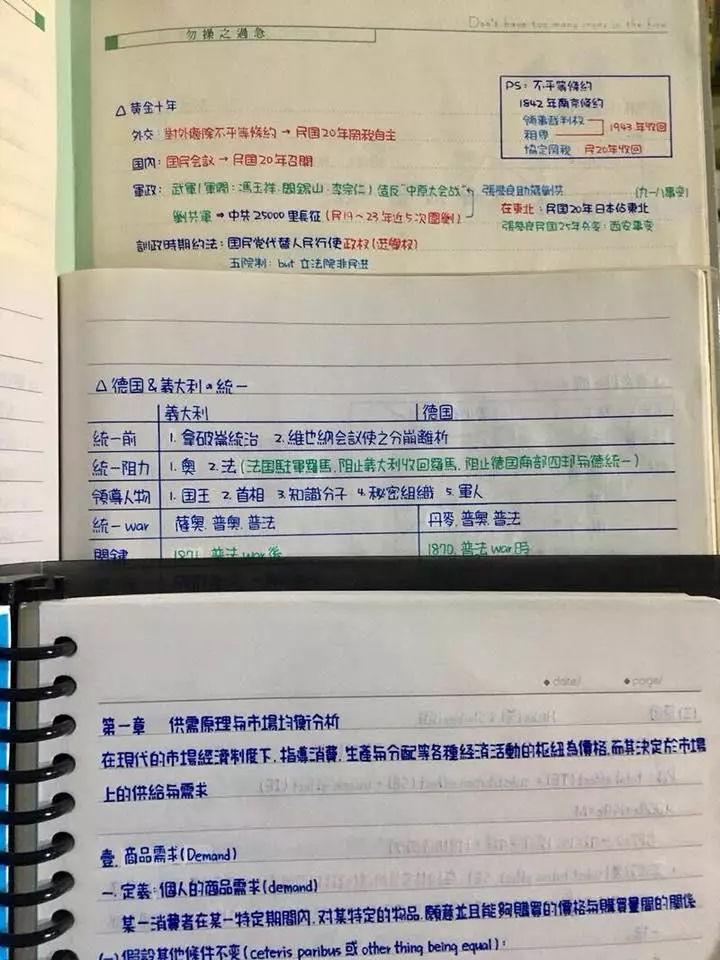 Don't have too many irons in the fire
勿操之過急
PS: 不平等條約
1842年南京條約
領事裁判權
租界
1943年收回
協定関税 民20年收回
△ 黃金十年
外交: 對外廢除不平等條約 → 民国20年関税自主
国內: 国民会議 → 民国20年召開
軍政: 武軍(軍閥: 馮玉祥.閻錫山.李宗仁) 造反"中原大会战" 張學良助蔣剿共 (九一八事变)
剿共軍 → 中共25000里長征 (民19~23年近5次圍剿) 在東北: 民国20年日本佔東北
張學良民国25年兵变: 西安事变
訓政時期約法: 国民党代替人民行使政权(選舉权)
五院制: but 立法院非民選
△ 德国&義大利の統一
義大利 德国
統一前 1. 拿破崙統治 2. 維也納会議使之分崩離析
統一阻力 1. 奧 2. 法 (法国駐軍羅馬, 阻止義大利收回羅馬, 阻止德国南部四邦与德統一)
領導人物 1. 国王 2. 首相 3. 知識分子 4. 秘密組織 5. 軍人
統一war 薩奧. 普奧. 普法 丹麥. 普奧. 普法
関鍵 1871. 普法war後 1870. 普法war時
◆ date/ ◆ page/
第一章 供需原理与市場均衡分析
在現代的市場經濟制度下, 指導消費, 生產与分配等各種経済活動的枢紐為價格, 而其決定於市場
上的供給与需求
壹. 商品需求(Demand)
一. 定義: 個人的商品需求(demand)
某一消費者在某一特定期間內, 対某特定的物品, 願意並且能夠購買的價格与購買量間的關係
(一) 假設其他條件不变(ceteris paribus 或 other thing being equal):